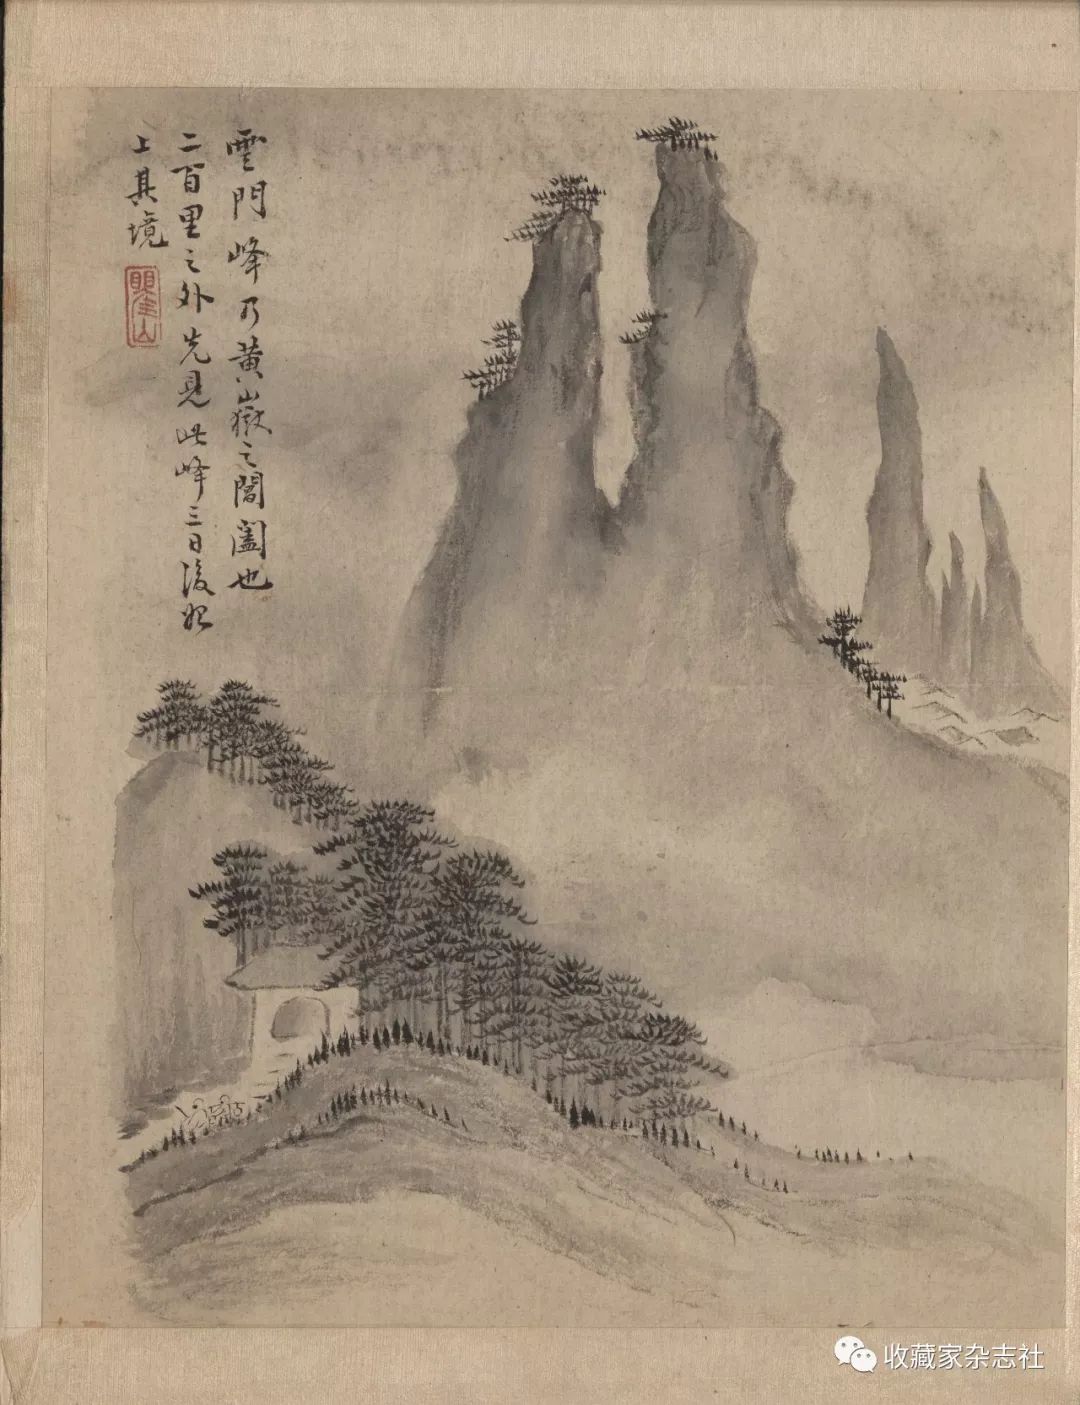 雲門峰乃黃嶽之閶闔也
二百里之外先見此峰三日後始
上其境
瞿山
收藏家杂志社